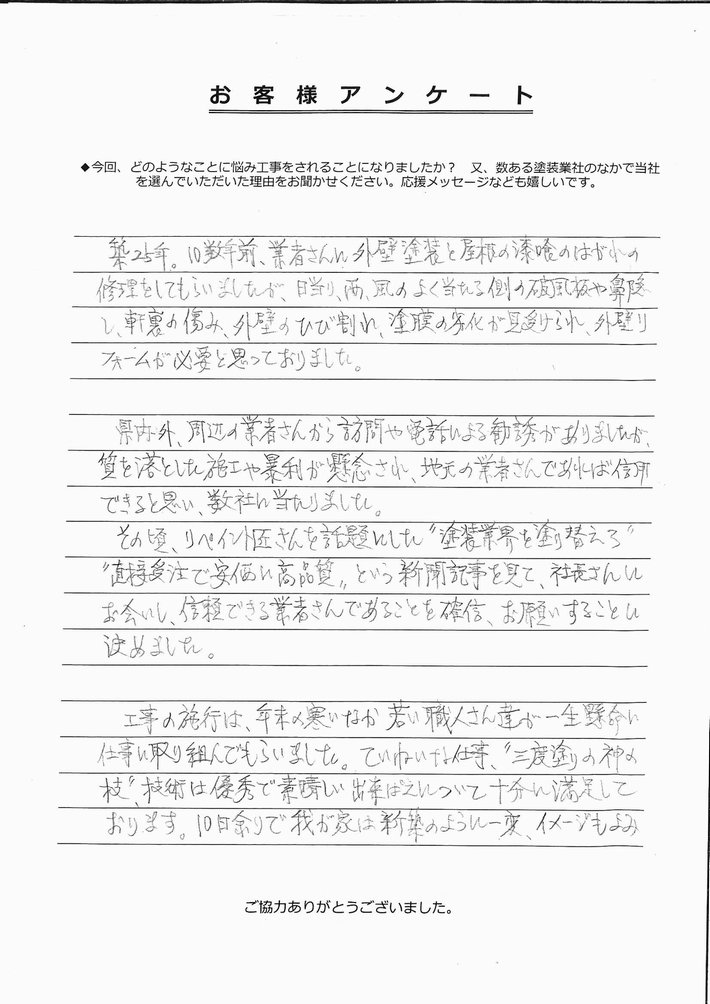 お客様アンケート
◆今回、どのようなことに悩み工事をされることになりましたか？　又、数ある塗装業社のなかで当社
を選んでいただいた理由をお聞かせください。応援メッセージなども嬉しいです。
築25年。10数年前、業者さんに外壁塗装と屋根の漆喰のはがれの
修理をしてもらいましたが、日当り、雨、風のよく当たる側の破風板や鼻隠
し、軒裏の傷み、外壁のひび割れ、塗膜の劣化が見受けられ、外壁リ
フォームが必要と思っておりました。
県内外、周辺の業者さんから訪問や電話による勧誘がありましたが、
質を落とした施工や暴利が懸念され、地元の業者さんであれば信用
できると思い、数社に当たりました。
その頃、リペイント匠さんを話題にした"塗装業界を塗り替えろ"
"直接受注で安価に高品質〟という新聞記事を見て、社長さんに
お会いし、信頼できる業者さんであることを確信、お願いすることに
決めました。
工事の施行は、年末の寒いなか若い職人さん達が一生懸命に
仕事に取り組んでもらいました。ていねいな仕事、"三度塗りの神の
技"、技術は優秀で素晴しい出来ばえについて十分に満足して
おります。10日余りで我が家は新築のように一変、イメージもよみ
ご協力ありがとうございました。